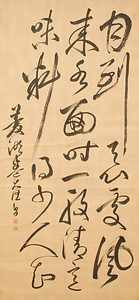 月到天心處風
來水面時一般清意
味料得少人知
菱湖卷大任書